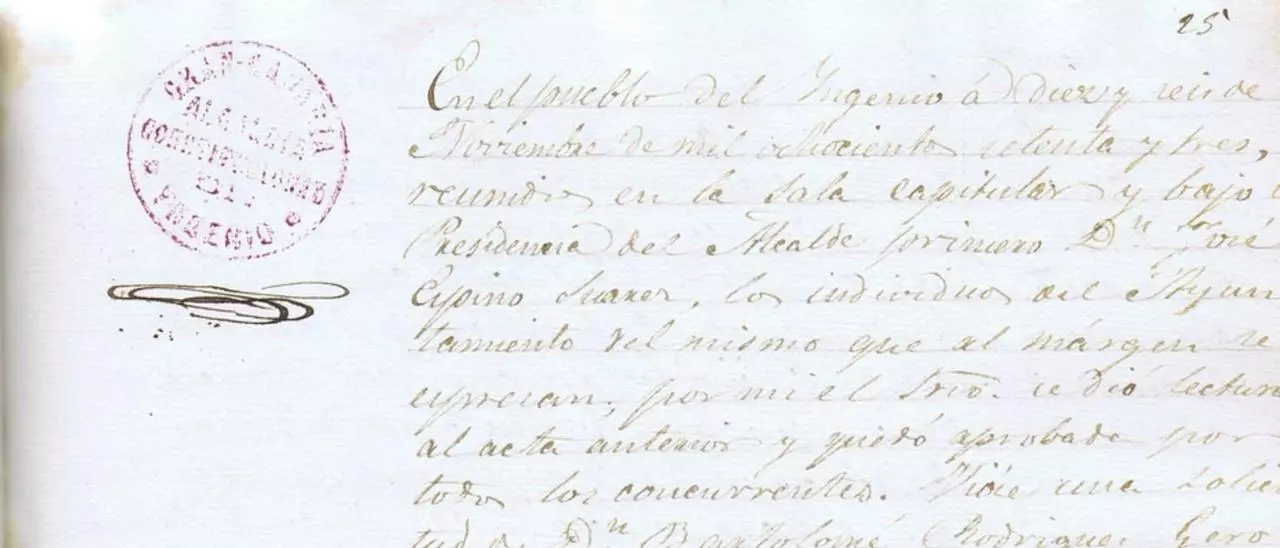 25
GRAN-CANARIA
ALCALDIA
CONSTITUCIONAL
DEL
INGENIO
En el pueblo del Ingenio á diez y seis de
Noviembre de mil ochociento setenta y tres,
reunidos en la Sala capitular y bajo l
Presidencia del Alcalde primero D.n José
Espino Suarez, los individuos del Ayun
tamiento del mismo que al márgen se
espresan, por mi el Srio. se dió lectura
al acta anterior y quedó aprobada por
todos los concurrentes. Vióse una solici
tud de D.n Bartolomé Rodriguez